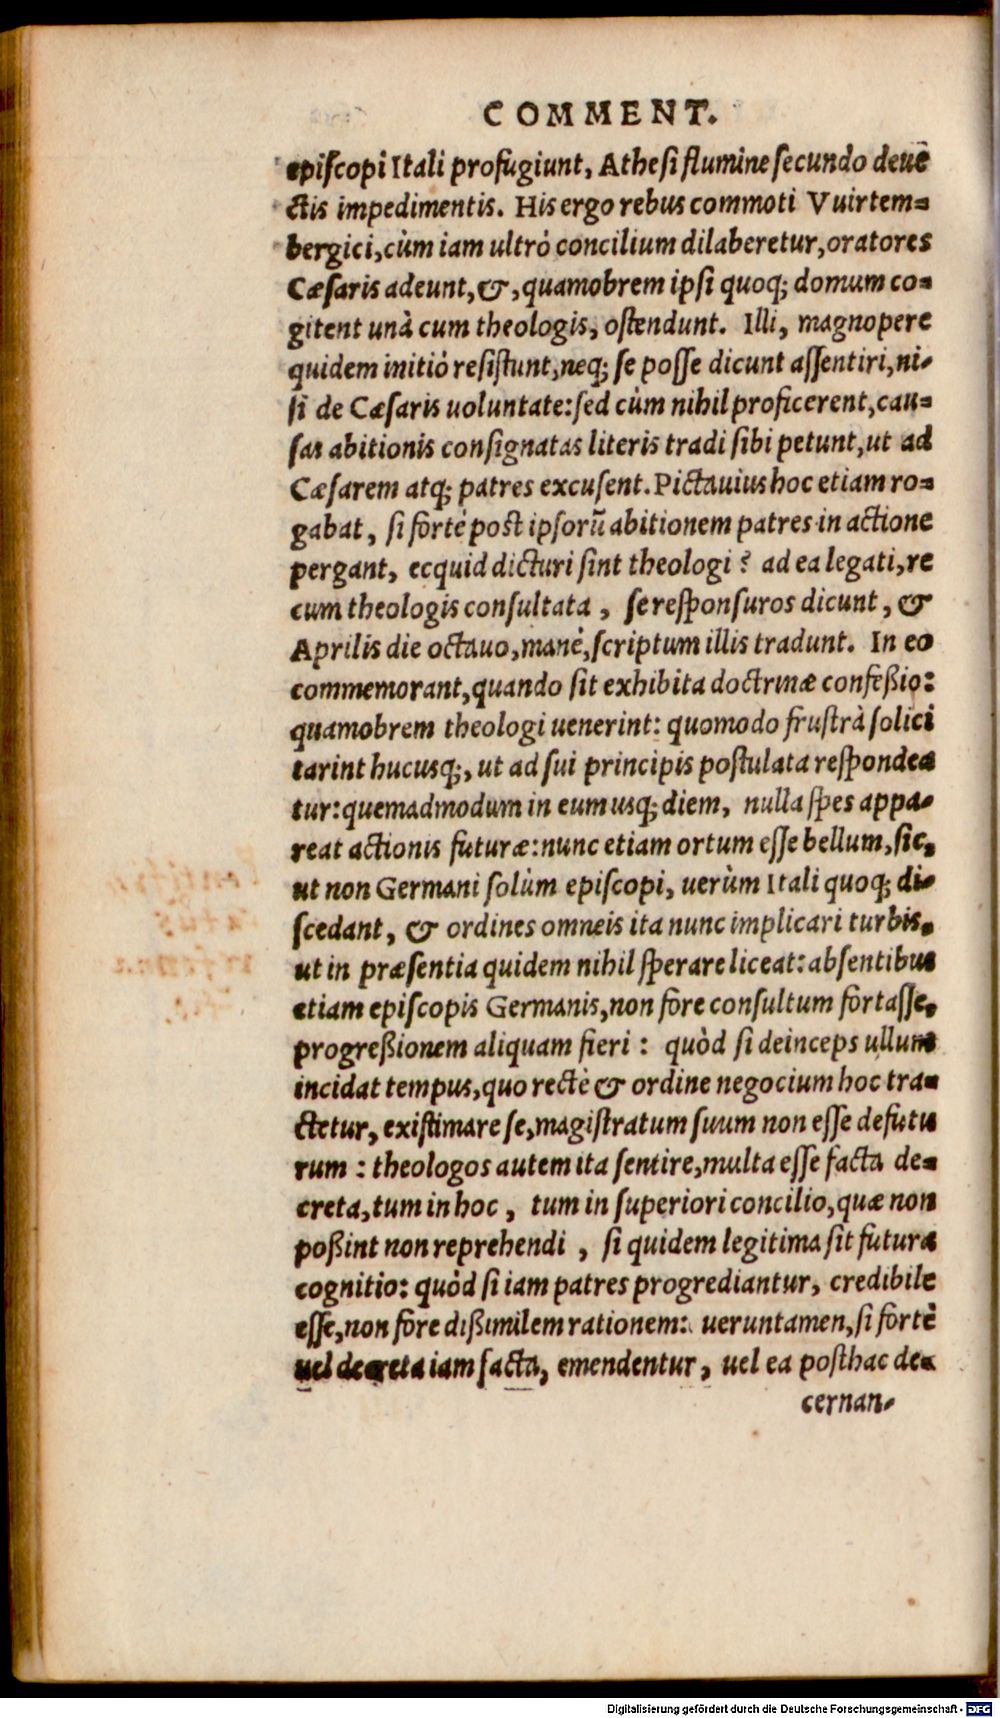 COMMENT.
episcopi Itali profugiunt, Athesi flumine secundo deuē
ctis impedimentis. His ergo rebus commoti Vuirtem=
bergici, cùm iam ultrò concilium dilaberetur, oratores
Cæsaris adeunt, &, quamobrem ipsi quoq; domum co=
gitent unà cum theologis, ostendunt. Illi, magnopere
quidem initiò resistunt, neq; se posse dicunt assentiri, ni-
si de Cæsaris uoluntate: sed cùm nihil proficerent, cau=
sas abitionis consignatas literis tradi sibi petunt, ut ad
Cæsarem atq; patres excusent. Pictauius hoc etiam ro=
gabat, si fortè post ipsorū abitionem patres in actione
pergant, ecquid dicturi sint theologi? ad ea legati, re
cum theologis consultata, se responsuros dicunt, &
Aprilis die octauo, manè, scriptum illis tradunt. In eo
commemorant, quando sit exhibita doctrinæ confeßio:
quamobrem theologi uenerint: quomodo frustrà solici
tarint hucusq;, ut ad sui principis postulata respondea
tur: quemadmodum in eum usq; diem, nulla spes appa-
reat actionis futuræ: nunc etiam ortum esse bellum, sic,
ut non Germani solùm episcopi, uerùm Itali quoq; di-
scedant, & ordines omneis ita nunc implicari turbis,
ut in præsentia quidem nihil sperare liceat: absentibus
etiam episcopis Germanis, non fore consultum fortasse,
progreßionem aliquam fieri: quòd si deinceps ullum
incidat tempus, quo rectè & ordine negocium hoc tra=
ctetur, existimare se, magistratum suum non esse defutu
rum: theologos autem ita sentire, multa esse facta de=
creta, tum in hoc, tum in superiori concilio, quæ non
poßint non reprehendi, si quidem legitima sit futura
cognitio: quòd si iam patres progrediantur, credibile
esse, non fore dißimilem rationem: ueruntamen, si fortè
uel decreta iam facta, emendentur, uel ea posthac de=
cernan-
Digitalisierung gefördert durch die Deutsche Forschungsgemeinschaft - DFG